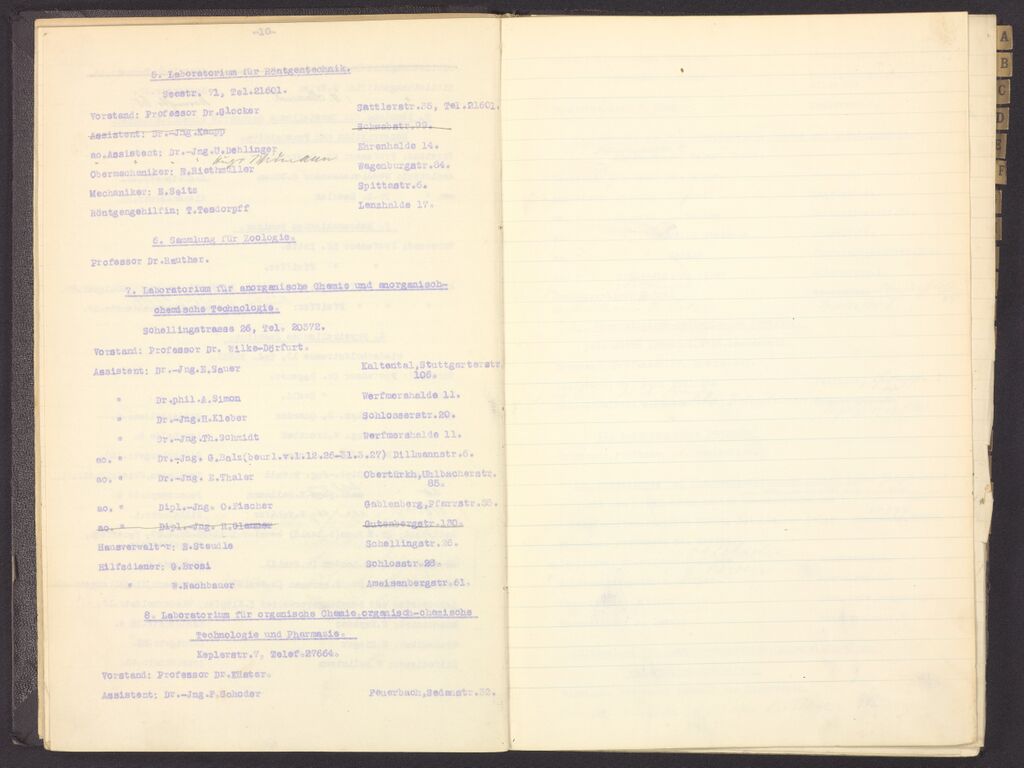 -10-
5. Laboratorium für Röntgentechnik.
Seestr. 71, Tel.21601.
Vorstand: Professor Dr.Glocker Sattlerstr.35, Tel.21601.
Assistent: Dr.-Jng.Kaupp Schwabstr.99.
ao.Assistent: Dr.-Jng.U.Dehlinger Ehrenhalde 14.
" " "
Obermechaniker: R.Riethmüller Wagenburgstr.84.
Mechaniker: E.Seitz Spittastr.6.
Röntgengehilfin: T.Tesdorpff Lenzhalde 17.
6. Sammlung für Zoologie.
Professor Dr.Rauther.
7. Laboratorium für anorganische Chemie und anorganisch-
chemische Technologie.
Schellingstrasse 26, Tel. 20372.
Vorstand: Professor Dr. Wilke-Dörfurt.
Assistent: Dr.-Jng.E.Sauer Kaltental,Stuttgarterstr.
106.
" Dr.phil.A.Simon Werfmershalde 11.
" Dr.-Jng.H.Kleber Schlosserstr.20.
" Dr.-Jng.Th.Schmidt Werfmershalde 11.
ao. " Dr.-Jng. G.Balz(beurl.v.1.12.26-31.3.27) Dillmannstr.5.
ao. " Dr.-Jng. E.Thaler Obertürkh,Uhlbacherstr.
85.
ao. " Dipl.-Jng. O.Fischer Gablenberg,Pfarrstr.
ao. " Dipl.-Jng. H. Gutenbergstr.130.
Hausverwalter: E.Steudle Schellingstr.26.
Hilfsdiener: G.Brosi Schlosstr.
" W.Nachbauer Ameisenbergstr.61.
8. Laboratorium für organische Chemie,organisch-chemische
Technologie und Pharmazie.
Keplerstr.7, Telef.27664.
Vorstand: Professor Dr.Küster.
Assistent: Dr.-Jng.P.Schoder Feuerbach,Sedanstr.32.
A
B
C
D
E
F